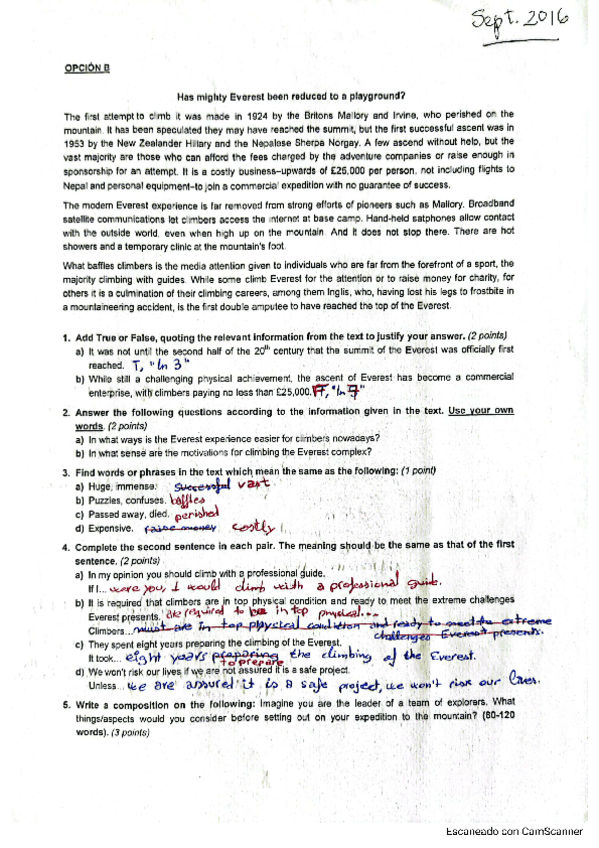 Sept. 2016
OPCIÓN B
Has mighty Everest been reduced to a playground?
The first attempt to climb it was made in 1924 by the Britons Mallory and Irvine, who perished on the
mountain. It has been speculated they may have reached the summit, but the first successful ascent was in
1953 by the New Zealander Hillary and the Nepalese Sherpa Norgay. A few ascend without help, but the
vast majority are those who can afford the fees charged by the adventure companies or raise enough in
sponsorship for an attempt. It is a costly business–upwards of £25,000 per person, not including flights to
Nepal and personal equipment–to join a commercial expedition with no guarantee of success.
The modern Everest experience is far removed from strong efforts of pioneers such as Mallory. Broadband
satellite communications let climbers access the internet at base camp. Hand-held satphones allow contact
with the outside world, even when high up on the mountain. And it does not stop there. There are hot
showers and a temporary clinic at the mountain's foot.
What baffles climbers is the media attention given to individuals who are far from the forefront of a sport, the
majority climbing with guides. While some climb Everest for the attention or to raise money for charity, for
others it is a culmination of their climbing careers, among them Inglis, who, having lost his legs to frostbite in
a mountaineering accident, is the first double amputee to have reached the top of the Everest.
1. Add True or False, quoting the relevant information from the text to justify your answer. (2 points)
a) It was not until the second half of the 20th century that the summit of the Everest was officially first
reached. T, "ln 3"
b) While still a challenging physical achievement, the ascent of Everest has become a commercial
enterprise, with climbers paying no less than £25,000.
2. Answer the following questions according to the information given in the text. Use your own
words. (2 points)
a) In what ways is the Everest experience easier for climbers nowadays?
b) In what sense are the motivations for climbing the Everest complex?
3. Find words or phrases in the text which mean the same as the following: (1 point)
a) Huge, immense. successful vast
b) Puzzles, confuses. baffles
c) Passed away, died. perished
d) Expensive. raise money costly
4. Complete the second sentence in each pair. The meaning should be the same as that of the first
sentence. (2 points)
a) In my opinion you should climb with a professional guide.
If I... were you, I would climb with a professional guide.
b) It is required that climbers are in top physical condition and ready to meet the extreme challenges
Everest presents. are required to be in top physical...
Climbers... must are in top physical condition and ready to meet the extreme
challenges Everest presents.
c) They spent eight years preparing the climbing of the Everest.
It took... eight years preparing the climbing of the Everest.
to prepare
d) We won't risk our lives if we are not assured it is a safe project.
Unless... we are assured it is a safe project, we won't risk our lives.
5. Write a composition on the following: Imagine you are the leader of a team of explorers. What
things/aspects would you consider before setting out on your expedition to the mountain? (80-120
words). (3 points)
Escaneado con CamScanner